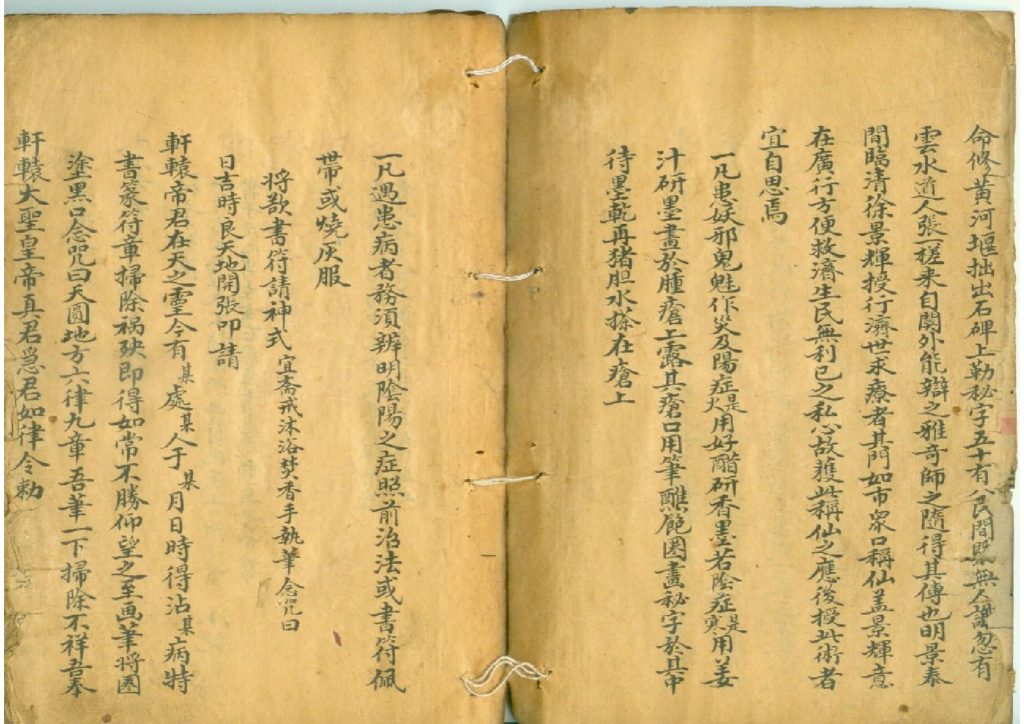 命修黃河堰拙出石碑上勒秘字五十有八民間眾無人識忽有
雲水道人張一槎来自関外能辯之雅奇師之隨得其傳也明景泰
間臨清徐景輝授行濟世求療者其門如市眾口稱仙盖景輝意
在廣行方便救濟生民無利己之私心故獲此稱仙之應後授此術者
宜自思焉
一凡患妖邪鬼魅作災及陽症是火用好醋研香墨若陰症是寒用姜
汁研墨畫於腫瘡上露其瘡口用筆醮範圈畫秘字於其中
待墨乾再猪胆水搽在瘡上
一凡遇患病者務須辨明陰陽之症照前治法或書符佩
帶或燒灰服
将欲書符請神式 宜齋戒沐浴焚香手執筆念咒曰
日吉時良天地開張叩請
軒轅帝君在天之靈今有某處某人于某月日時得沾某病特
書篆符章掃除禍殃即得如常不勝仰望之至画筆将圈
塗黑口念咒曰天圓地方六律九章吾筆一下掃除不祥吾奉
軒轅大聖皇帝真君急君如律令勅